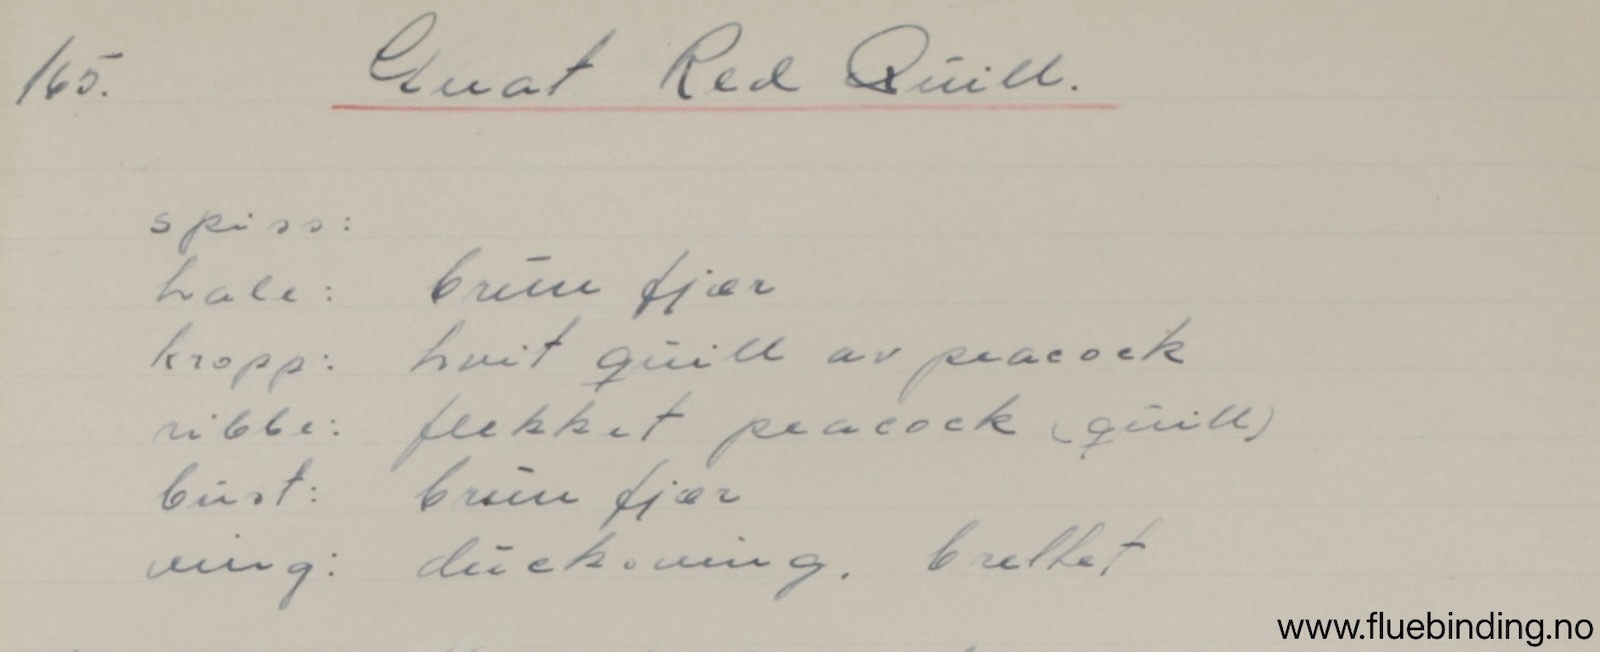 165. Gnat Red Quill.
spiss:
hale: brun fjær
kropp: hvit quill av peacock
ribbe: flekket peacock (quill)
bust: brun fjær
ving: duck.ving.
www.fluebinding.no